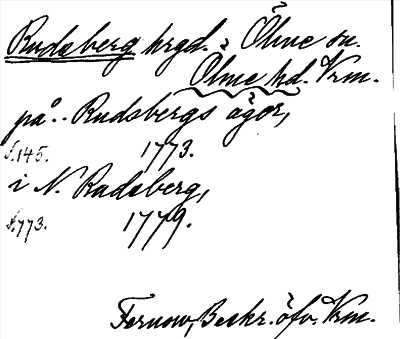 Rudsberg hrgd. i Ölme sn.
Ölme hd. Vrm.
på .. Rudsbergs ägor,
s. 145. 1773.
i N. Rudsberg,
s. 773. 1779.
Fernow, Beskr. öfv. Vrm.